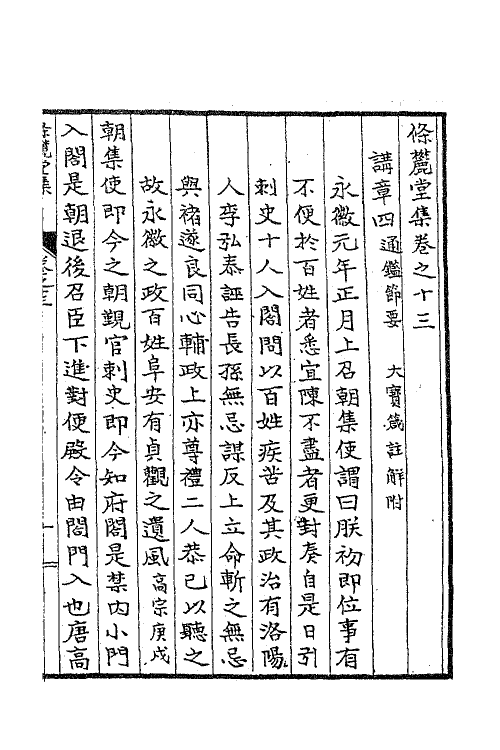 條麓堂集卷之十三
講章四通鑑節要　大寶箴註解附
永徽元年正月上召朝集使謂曰朕初即位事有
不便於百姓者悉宜陳不盡者更對奏自是日引
刺史十人入閤問以百姓疾苦及其政治有洛陽
人李弘泰誣告長孫無忌謀反上立命斬之無忌
與褚遂良同心輔政上亦尊禮二人恭已以聽之
故永徽之政百姓阜安有貞觀之遺風高宗庚戌
朝集使即今之朝覲官刺史即今知府閤是禁內小門
入閤是朝退後召臣下進對便殿令由閤門入也唐高
條麓堂集
卷之十三
一